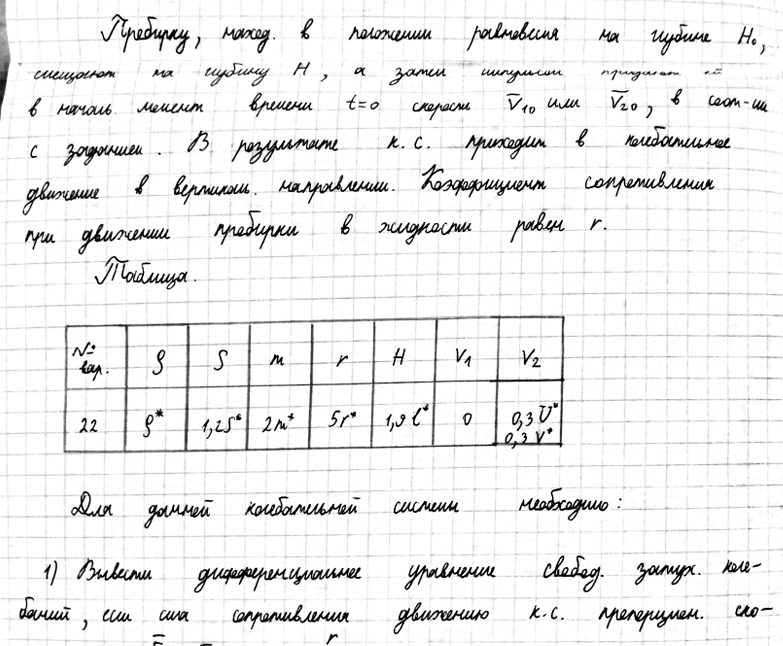 Пробирку, наход. в положении равновесия на глубине H₀,
смещают на глубину H, а затем импульсом придают ей
в началь. момент времени t=0 скорости V̅₁₀ или V̅₂₀, в соот-ии
с заданием. В результате к.с. приходит в колебательное
движение в вертикал. направлении. Коэффициент сопротивления
при движении пробирки в жидкости равен r.
Таблица.
№ вар. ρ S m r H V₁ V₂
22 ρ* 1,2S* 2m* 5r* 1,9l* 0 0,3 V*
0,3 V*
Для данной колебательной системы необходимо:
1) Вывести дифференциальное уравнение свобод. затух. коле-
баний, если сила сопротивления движению к.с. пропорцион. ско-
r